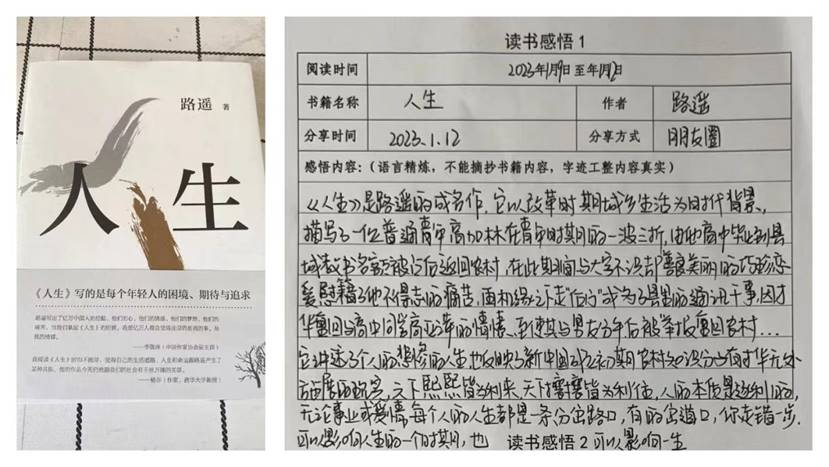 路遥 著
人生
《人生》写的是每个年轻人的困境、期待与追求
——李敬泽（中国作家协会副主席）
读书感悟1
阅读时间 2023年1月9日至年1月12日
书籍名称 人生 作者 路遥
分享时间 2023.1.12 分享方式 朋友圈
感悟内容：（语言精炼，不能摘抄书籍内容，字迹工整内容真实）
《人生》是路遥的成名作，它以改革时期城乡生活为时代背景，
描写了一位普通青年高加林在青年时期的一波三折，由他高中毕业到县
城教书名额被讨后返回农村，在此期间与大字不识却善良美丽的巧珍恋
爱慰藉了他不得志的痛苦，而机缘让走"后门"成为了县里的通讯干事，因才
华重回与高中同学黄亚萍的情愫，至使其与男友分手后被举报重回农村…
它讲述了个人的悲惨的人生也反映了新中国成立初期农村知识分子有才华无处
施展的现实，天下熙熙皆为利来，天下攘攘皆为利往，人的本质是逐利的，
无论事业或爱情，每个人的人生都是一条分岔路口，有的岔道口，你走错一步，
可以影响人生的一个时期，也 读书感悟2 可以影响一生